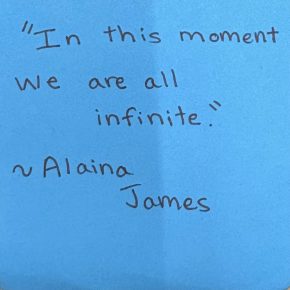 "In this moment
we are all
infinite."
~ Alaina
James